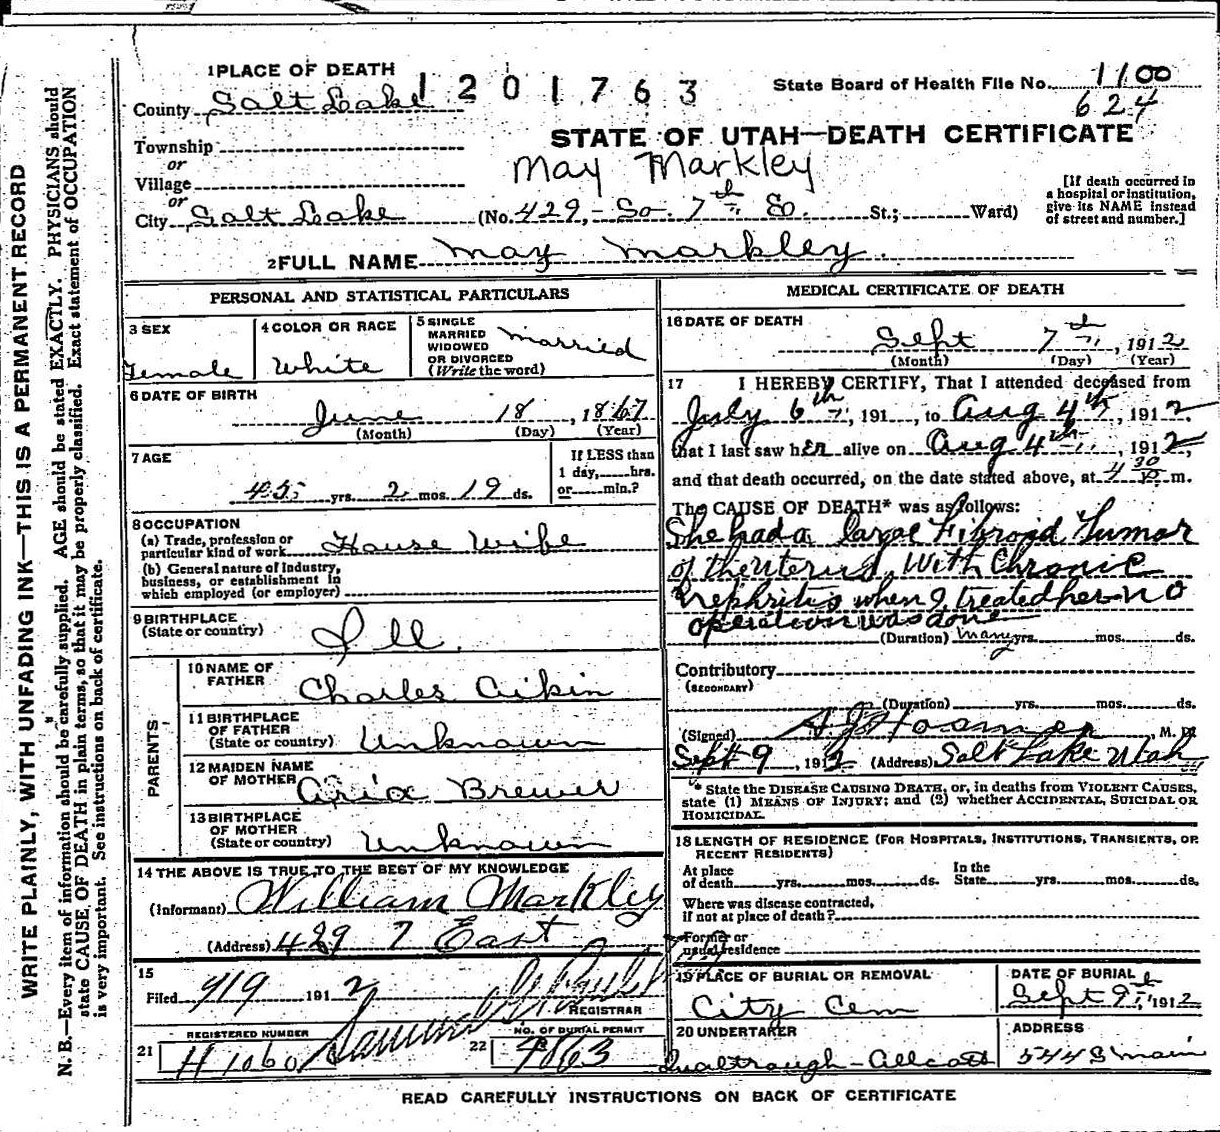 1 PLACE OF DEATH
1201763
State Board of Health File No. 1100
County Salt Lake
624
STATE OF UTAH—DEATH CERTIFICATE
Township
or
May Markley
Village
or
City Salt Lake (No. 429, - So. 7th Ea. St.; Ward)
[If death occurred in
a hospital or institution,
give its NAME instead
of street and number.]
2 FULL NAME May Markley.
PERSONAL AND STATISTICAL PARTICULARS
3 SEX
Female
4 COLOR OR RACE
White
5 SINGLE
MARRIED
WIDOWED
OR DIVORCED
(Write the word)
Married
6 DATE OF BIRTH
June 18, 1867
(Month) (Day) (Year)
7 AGE
45 yrs. 2 mos. 19 ds.
If LESS than
1 day, hrs.
or min.?
8 OCCUPATION
(a) Trade, profession or
particular kind of work House Wife
(b) General nature of Industry,
business, or establishment in
which employed (or employer)
9 BIRTHPLACE
(State or country) Ill.
PARENTS
10 NAME OF
FATHER Charles Aikin
11 BIRTHPLACE
OF FATHER
(State or country) Unknown
12 MAIDEN NAME
OF MOTHER Brewer
13 BIRTHPLACE
OF MOTHER
(State or country) Unknown
14 THE ABOVE IS TRUE TO THE BEST OF MY KNOWLEDGE
(Informant) William Markley
(Address) 429 7 East
15
Filed 9/9 1912
REGISTRAR
REGISTERED NUMBER
21 H 1060
NO. OF BURIAL PERMIT
22 4863
MEDICAL CERTIFICATE OF DEATH
16 DATE OF DEATH
Sept 7th, 1912
(Month) (Day) (Year)
17 I HEREBY CERTIFY, That I attended deceased from
July 6th, 191 , to Aug 4th, 1912
that I last saw her alive on Aug 4th, 1912,
and that death occurred, on the date stated above, at 4 30 m.
The CAUSE OF DEATH* was as follows:
She had a large Fibroid Tumor
of the Uterus, With Chronic
Nephritis when I treated her no
operation was done
(Duration) many yrs. mos. ds.
Contributory
(SECONDARY)
(Duration) yrs. mos. ds.
(Signed) A J Hosmer, M. D.
Sept 9, 1912 (Address) Salt Lake Utah
* State the DISEASE CAUSING DEATH, or, in deaths from VIOLENT CAUSES,
state (1) MEANS OF INJURY; and (2) whether ACCIDENTAL, SUICIDAL OR
HOMICIDAL.
18 LENGTH OF RESIDENCE (FOR HOSPITALS, INSTITUTIONS, TRANSIENTS, OR
RECENT RESIDENTS)
At place
of death yrs. mos. ds.
In the
State yrs. mos. ds.
Where was disease contracted,
if not at place of death?
Former or
usual residence
19 PLACE OF BURIAL OR REMOVAL
City Cem
DATE OF BURIAL
Sept 9th, 1912
20 UNDERTAKER
Qualtrough-Allcott
ADDRESS
544 S Main
READ CAREFULLY INSTRUCTIONS ON BACK OF CERTIFICATE
WRITE PLAINLY, WITH UNFADING INK—THIS IS A PERMANENT RECORD
N. B.—Every item of information should be carefully supplied. AGE should be stated EXACTLY. PHYSICIANS should
state CAUSE OF DEATH in plain terms, so that it may be properly classified. Exact statement of OCCUPATION
is very important. See instructions on back of certificate.